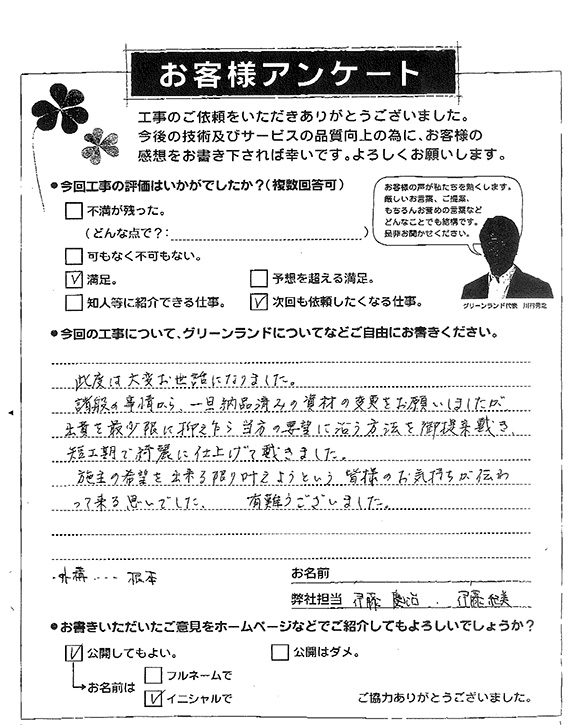 お客様アンケート
工事のご依頼をいただきありがとうございました。
今後の技術及びサービスの品質向上の為に、お客様の
感想をお書き下されば幸いです。よろしくお願いします。
●今回工事の評価はいかがでしたか？（複数回答可）
不満が残った。
（どんな点で？：）
可もなく不可もない。
満足。
予想を超える満足。
知人等に紹介できる仕事。
次回も依頼したくなる仕事。
お客様の声が私たちを熱くします。
厳しいお言葉、ご提案、
もちろんお褒めの言葉など
どんなことでも結構です。
是非お聞かせください。
グリーンランド代表
●今回の工事について、グリーンランドについてなどご自由にお書きください。
此度は大変お世話になりました。
諸般の事情から、一旦納品済みの資材の変更をお願いしましたが
出費を最少限に抑え乍ら当方の要望に沿う方法を御提案戴き、
短工期で綺麗に仕上げて戴きました。
施主の希望を出来る限り叶えようという皆様のお気持ちが伝わ
って来る思いでした、 有難うございました。
・外構 ‥‥ 根本
お名前
弊社担当 伊藤 . 伊藤
●お書きいただいたご意見をホームページなどでご紹介してもよろしいでしょうか？
公開してもよい。
公開はダメ。
お名前は
フルネームで
イニシャルで
ご協力ありがとうございました。